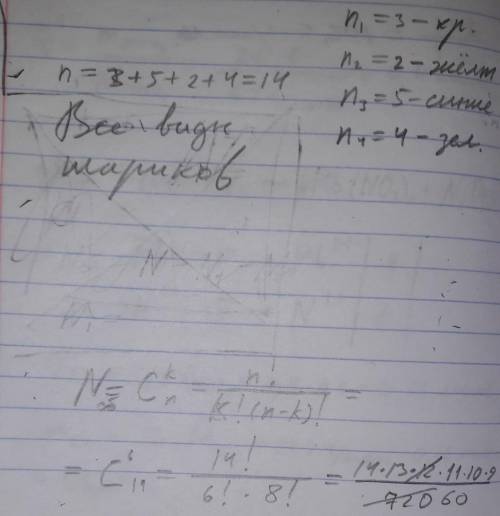 n₁ = 3 – кр.
n₂ = 2 – жёлт
n₃ = 5 – синие
n₄ = 4 – зел.
n = 3 + 5 + 2 + 4 = 14
Все видн
шариков
N = C_n^k = n! / k!(n-k)! =
= C_14^6 = 14! / 6! · 8! = 14·13·12·11·10·9 / 720 60